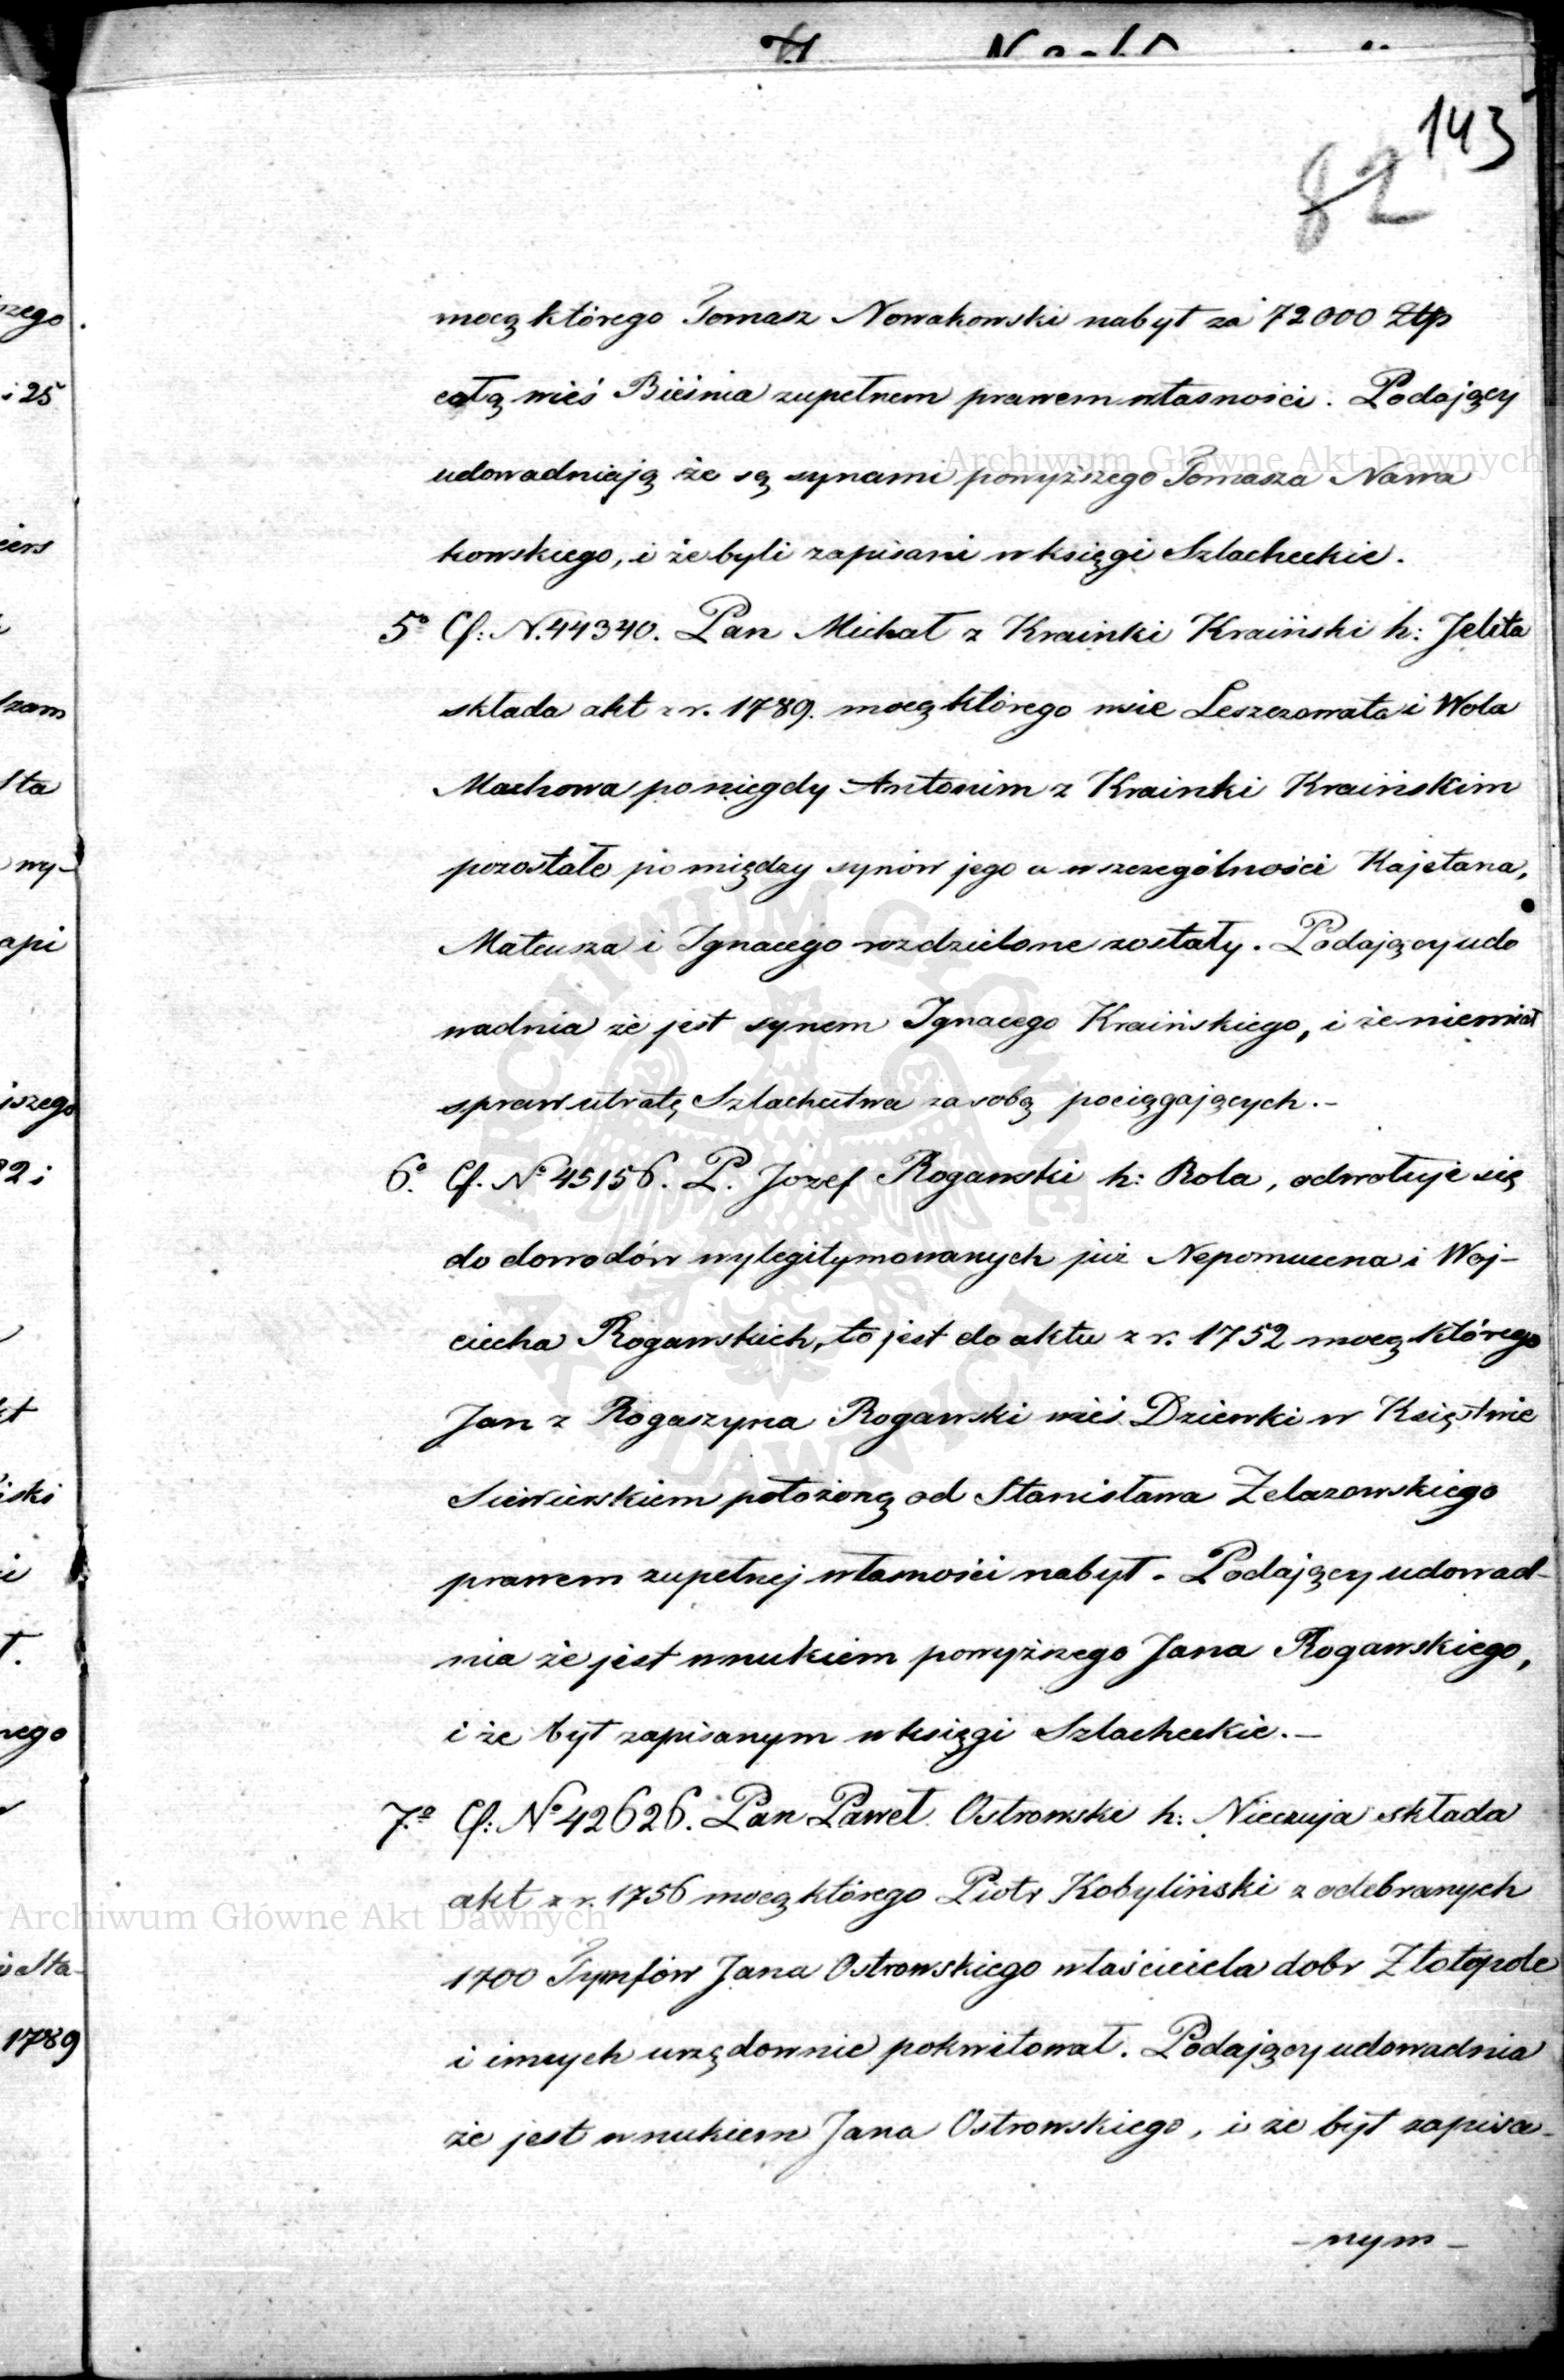 143
82
mocą którego Tomasz Nowakowski nabył za 72000 Złp
całą wieś Bieśnia zupełnem prawem własności. Podający
udowadniają że są synami powyższego Tomasza Nawa
kowskiego, i że byli zapisani w księgi Szlacheckie.
5° Cf: N. 44340. Pan Michał z Krainki Kraiński h: Jelita
składa akt z r. 1789. mocą którego wsie Leszczowata i Wola
Machowa po niegdy Antonim z Krainki Kraińskim
pozostałe pomiędzy synów jego a w szczególności Kajetana,
Mateusza i Ignacego rozdzielone zostały. Podający udo
wadnia że jest synem Ignacego Kraińskiego, i że niemiał
spraw utratę Szlachectwa za sobą pociągających.-
6° Cf. N° 45156. P. Jozef Rogawski h: Rola, odwołuje się
do dowodów wylegitymowanych już Nepomucena i Woj-
ciecha Rogawskich, to jest do aktu z r. 1752 mocą którego
Jan z Rogaszyna Rogawski wieś Dziewki w Księstwie
Siewierskiem położoną od Stanisława Zelazowskiego
prawem zupełnej własności nabył. Podający udowad-
nia że jest wnukiem powyższego Jana Rogawskiego,
i że był zapisanym w księgi Szlacheckie.-
7° Cf: N° 42626. Pan Paweł Ostrowski h: Nieczuja składa
akt z r. 1756 mocą którego Piotr Kobyliński z odebranych
1700 Tymfów Jana Ostrowskiego właściciela dobr Złotopole
i innych urzędownie pokwitował. Podający udowadnia
że jest wnukiem Jana Ostrowskiego, i że był zapisa-
-nym-
Archiwum Główne Akt Dawnych
Archiwum Główne Akt Dawnych
ARCHIWUM GŁÓWNE
AKT DAWNYCH
zego.
i 25
iers
szam
sta
wy-
api
jszego
82 i
kt
iski
i
ł.
nego
Sta-
1789